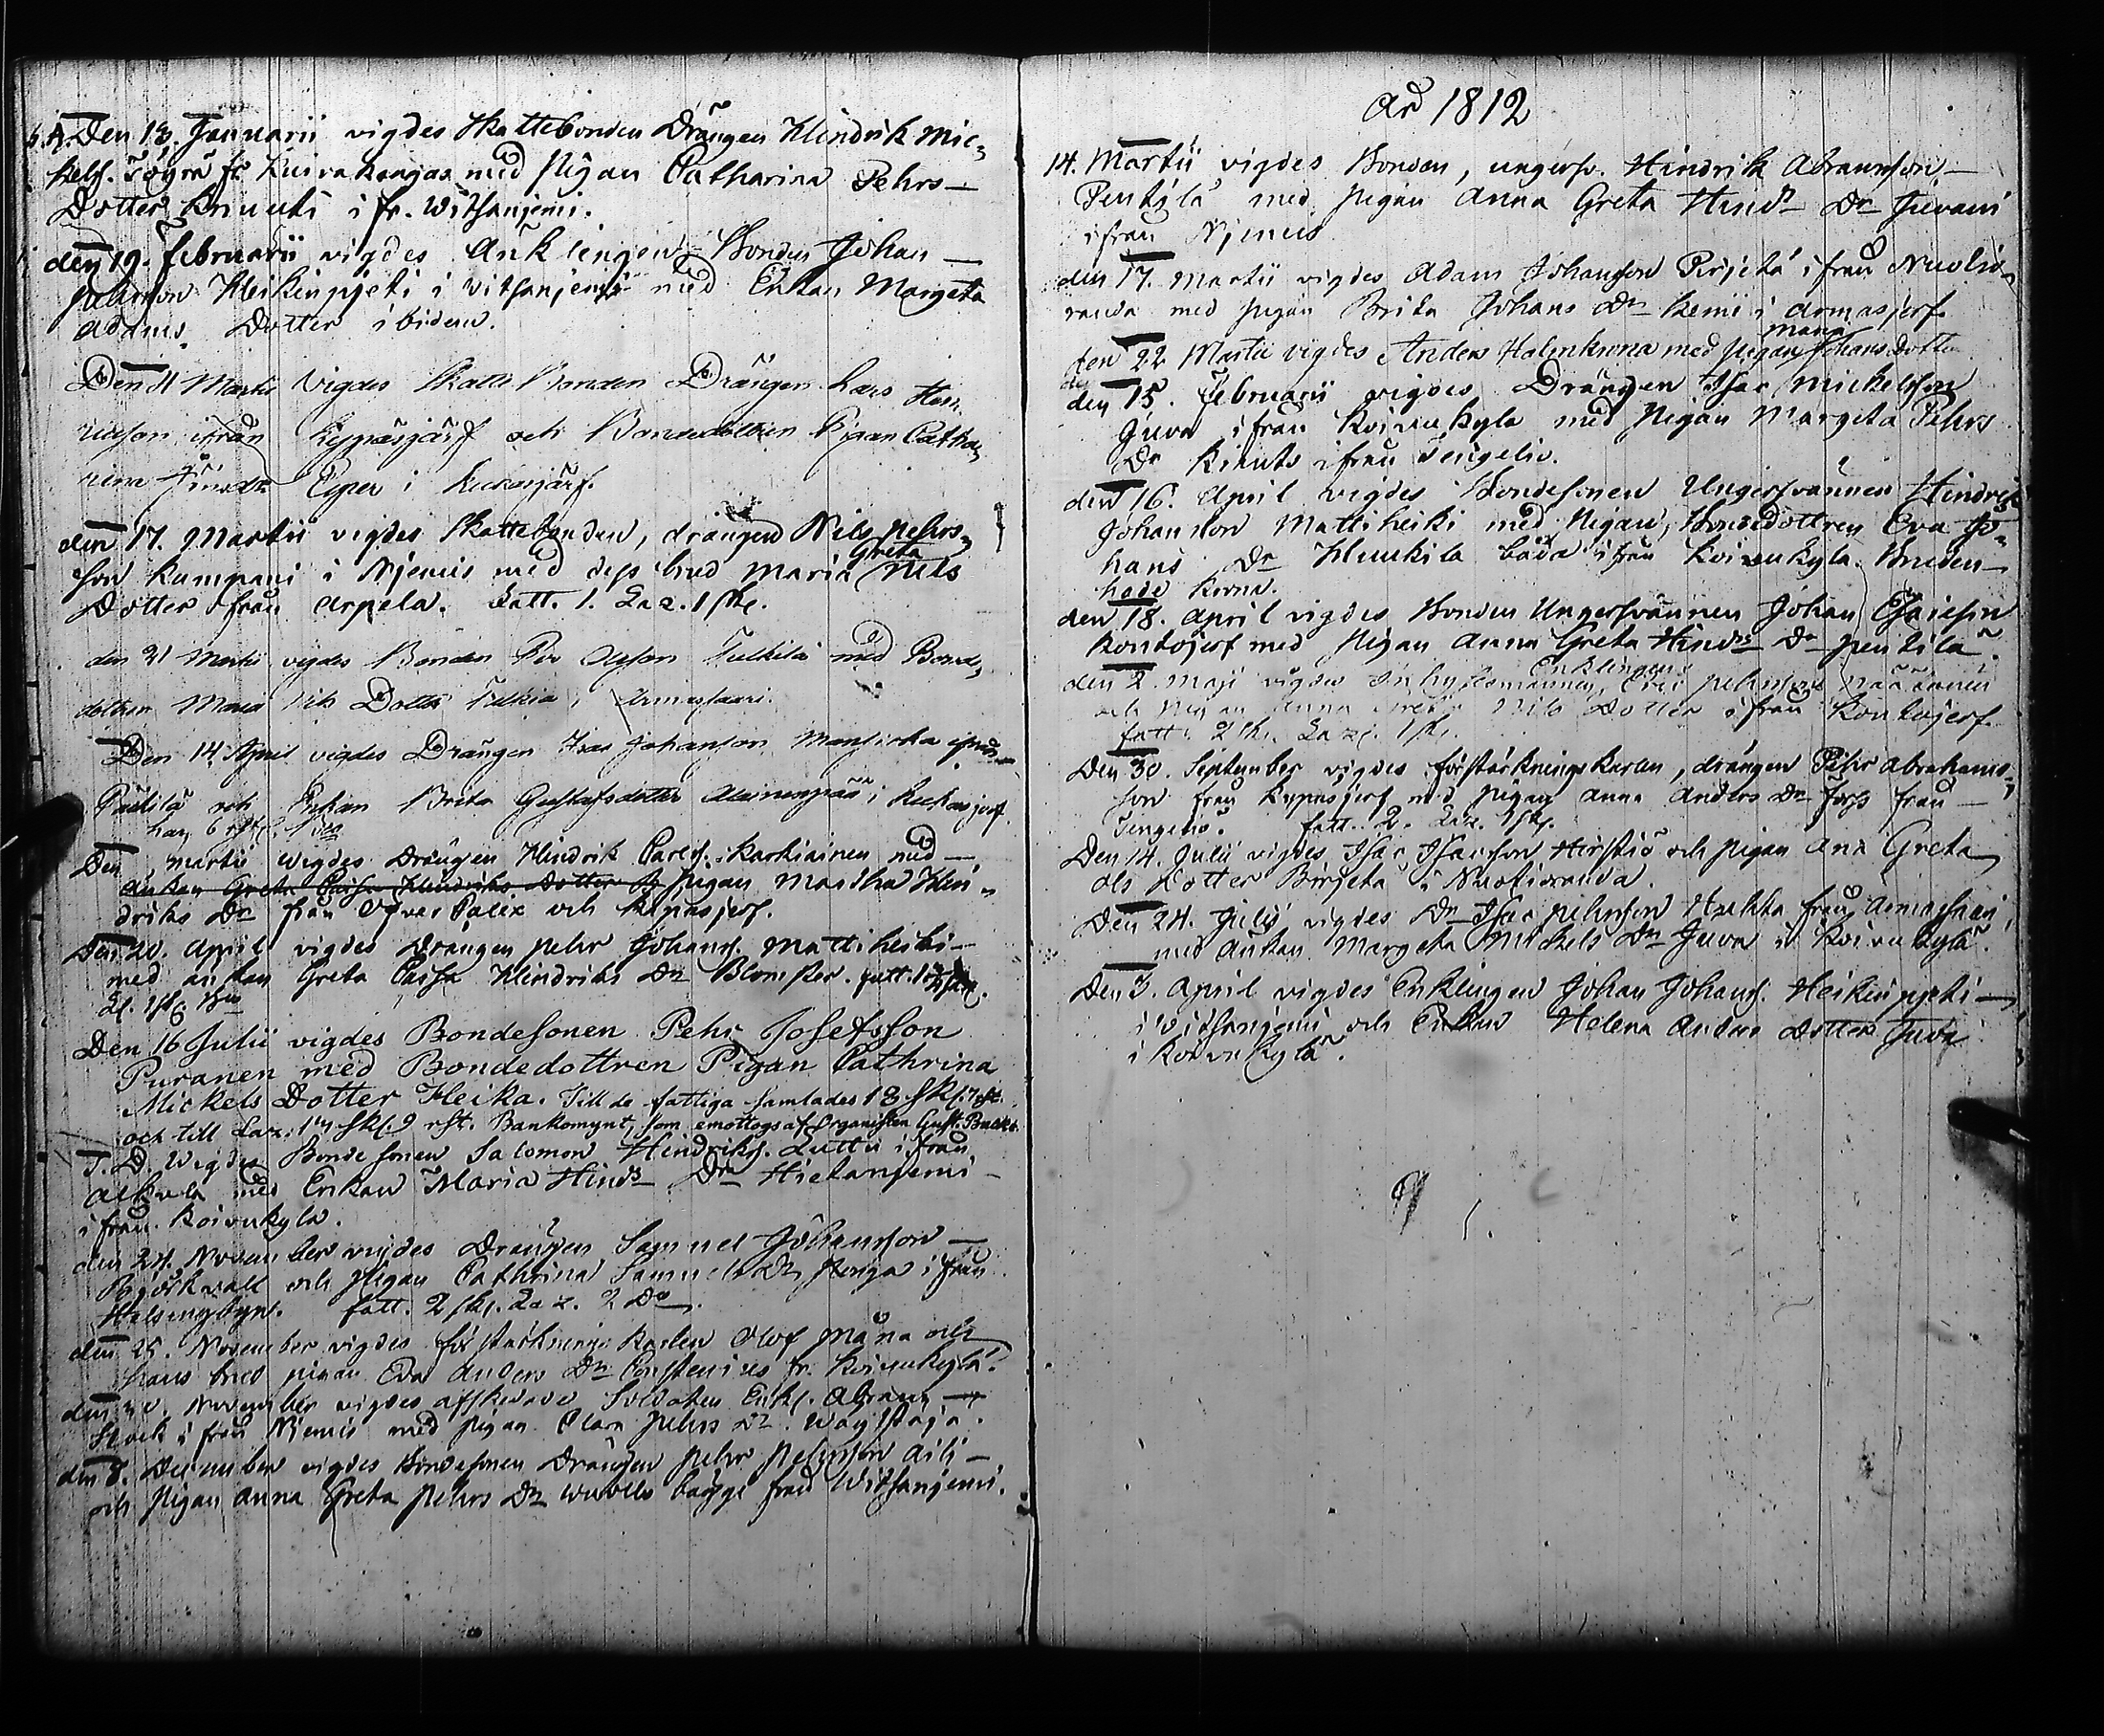 Den 13. Januarii vigdes Skattebonden Drängen Hindrik Mic=
kelss. fr Kuivakangas med Pigan Catharina Pehrs
Dotter i fr. Witsanjemi.
den 19. Februarii vigdes Änklingen Bonden Johan
Pehrsson Heikinpjeti i Vitsanjemi med Enkan Margeta
Adams Dotter ibidem.
Den 11 Martii Vigdes Skatte Bonden Drängen Lars Hen
ricsson ifrån Kypäsjärf och Bondedottren Pigan Catha
rina i Kuckasjärf.
den 17. Martii vigdes Skattebonden, drängen Nils Pehrs=
son Kumpani i Njemis med dess brud Maria Greta Nils
Dotter ifrån Arpela. Fatt. 1. Laz. 1 sk.
den 21 Martii vigdes Bonden Per Olsson Tulkila med Bonde
dottren Maria Nils Dotter i Armassaari.
Den 14 April vigdes Drängen Isac Johanson ifrån
Päkilä och Enkan Brita Gustafsdotter i Kuckasjerf
Den Martii wigdes Drängen Hindrik Carlss. Karhiainen med
änkan Greta Caisa Hindriks Dotter Pigan Martha Hin=
driks Dr från Öfver Calix och Kypäsjerf.
Den 20. April vigdes Drängen Pehr Johanss. Mattiheiki
med änkan Greta Caisa Hindriks Dr Blomster. fatt. 1
Den 16 Julii vigdes Bondesonen Pehr Josefsson
Puranen med Bondedottren Pigan Cathrina
Mickels Dotter Heika. Till de fattiga samlades 18 sk. 7 rst.
och till Laz. 17 sk. 9 rst. Bankomynt, som emottogs af Organisten Gust.
S. D. Wigdes Bondesonen Salomon Hindrikss. Luttu ifrån
Alkula med Enkan Maria Hinds Dr Hietanjemi
ifrån Koivukylä.
den 24. November vigdes Drängen Samuel Johansson
Björkvall och Pigan Cathrina Samuels Dr ifrån
Helsingbyn. fatt. 2 sk. Laz. 2 Do
den 25. November vigdes förstärknings Karlen Olof Måna och
hans brud pigan Eva Anders Dr Constenius fr. Koivukylä.
den November vigdes afskedade Soldaten Enkl. Abram
Stock ifrån Njemis med pigan Clara Pehrs Dr.
den 8. December vigdes Bondesonen Drängen Pehr Pehrsson Aili
och Pigan Anna Greta Pehrs Dr bägge från Witsanjemi.
År 1812
14. Martii vigdes Bonden, ungersv. Hindrik Abramsson
Pentilä med Pigan Anna Greta Hinds Dr Juvani
ifrån Njemis
den 17. Martii vigdes Adam Johansson Pirjetä ifrån Nuolio=
randa med pigan Brita Johans Dr Kemi i Armasjerf.
den 22 Martii vigdes Anders Halmkrona med Pigan Maria Johans Dotter
den 15. Februarii vigdes Drängen Isac Mickelsson
Juva ifrån Koivukylä med Pigan Margeta Pehrs
Dr Knuts ifrån Tengeliö.
den 16. April vigdes Bondesonen Ungersvännen Hindrik
Johansson Mattiheiki med Pigan, Bondedottren Eva Jo=
hans Dr Huukila båda ifrån Koivukylä. Bruden
hade Krona.
den 18. April vigdes Bonden Ungersvännen Johan Esaiesson
Kontojerf med Pigan Anna Greta Hinds Dr Pentilä.
den 2. Maji vigdes Inhysesmannen, Enklingen Eric Pehrsson
och Pigan Anna Greta Nils Dotter ifrån Kontojerf.
fatt. 2 sk. Laz. 1 sk.
Den 30. September vigdes förstärkningskarlen, drängen Pehr Abrahams=
son från Kypäsjerf med Pigan Anna Anders Dr Forss från
Tengeliö. fatt. 2. Laz. 1 sk.
Den 14. Julii vigdes Isac Isacsson Hirstiö och pigan Ana Greta
Ols Dotter Birjeta i Nuolioranda.
Den 24. Julii vigdes Dr Isac Pehrsson från Armassari
med änkan Margeta Mickels Dr Juva i Koivukylä.
Den 3. April vigdes Enklingen Johan Johanss. Heikinpjeti
i Vitsanjemi och Enkan Helena Anders Dotter Juva
i Koivukylä.